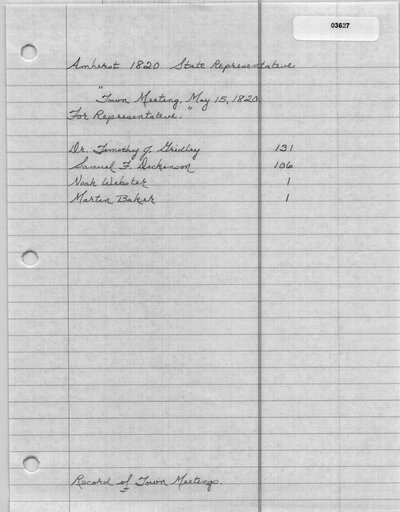 03627
Amherst 1820 State Representative
"Town Meeting, May 15, 1820
For Representative."
Dr. Timothy J. Gridley 131
Samuel F. Dickinson 106
Noah Webster 1
Martin Baker 1
Record of Town Meetings.